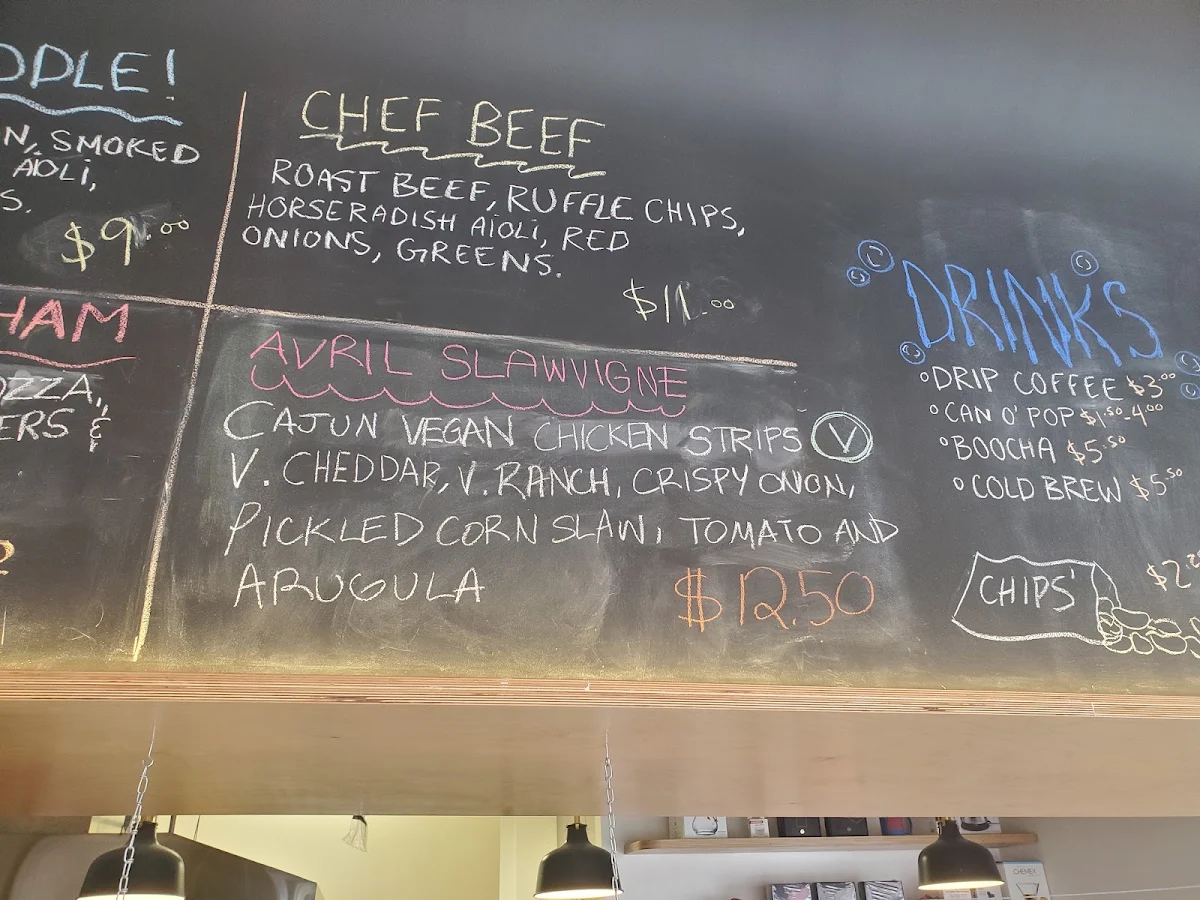 DDLE!
N, SMOKED
AÏOLI,
S.
$9.00
HAM
OZZA,
ERS &
CHEF BEEF
ROAST BEEF, RUFFLE CHIPS,
HORSERADISH AÏOLI, RED
ONIONS, GREENS.
$11.00
AVRIL SLAWVIGNE
CAJUN VEGAN CHICKEN STRIPS V
V. CHEDDAR, V. RANCH, CRISPY ONION,
PICKLED CORN SLAW, TOMATO AND
ARUGULA
$12.50
DRINKS
DRIP COFFEE $3.00
CAN O' POP $1.50-4.00
BOOCHA $5.50
COLD BREW $5.50
CHIPS' $2.2
CHEMEX